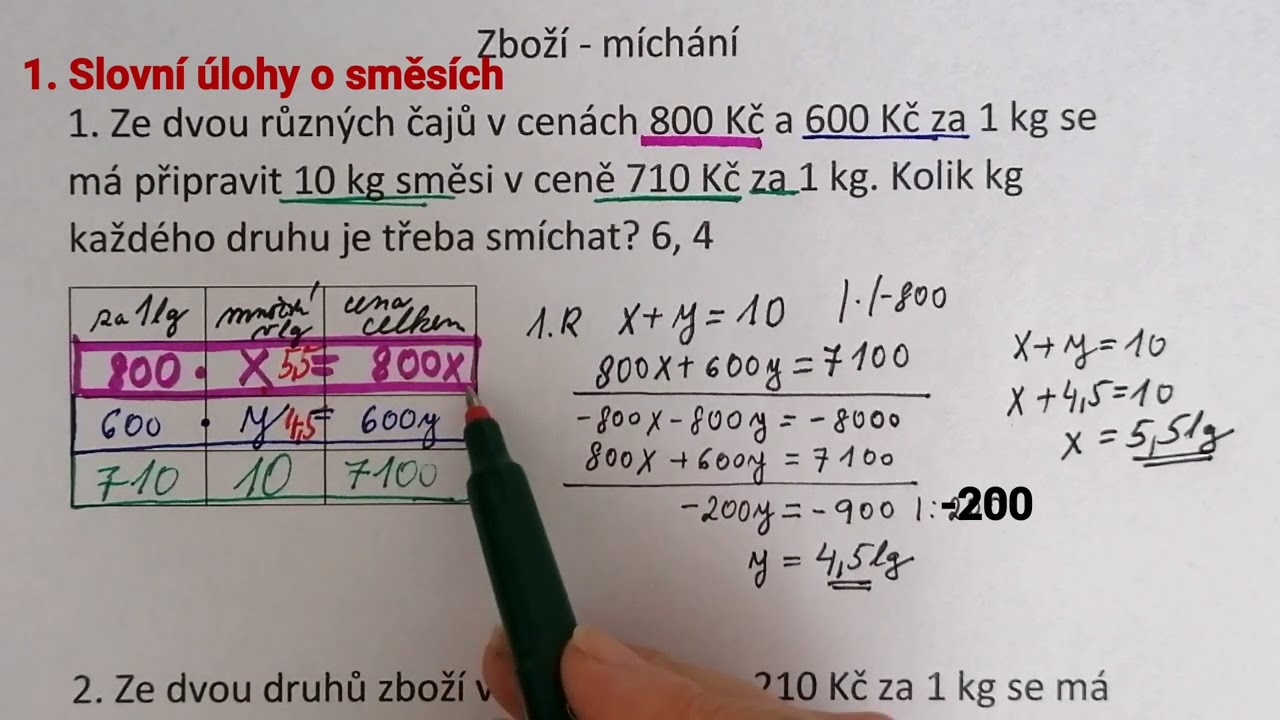 Zboží - míchání
1. Slovní úlohy o směsích
1. Ze dvou různých čajů v cenách 800 Kč a 600 Kč za 1 kg se
má připravit 10 kg směsi v ceně 710 Kč za 1 kg. Kolik kg
každého druhu je třeba smíchat? 6, 4
za 1kg množství v kg cena celkem
800 · x 5,5 = 800x
600 · y 4,5 = 600y
710 10 7100
1.R x+y=10 /·/-800
800x+600y=7100
-800x-800y=-8000
800x+600y=7100
-200y=-900 |: -200
y = 4,5kg
x+y=10
x+4,5=10
x = 5,5kg
2. Ze dvou druhů zboží v 210 Kč za 1 kg se má